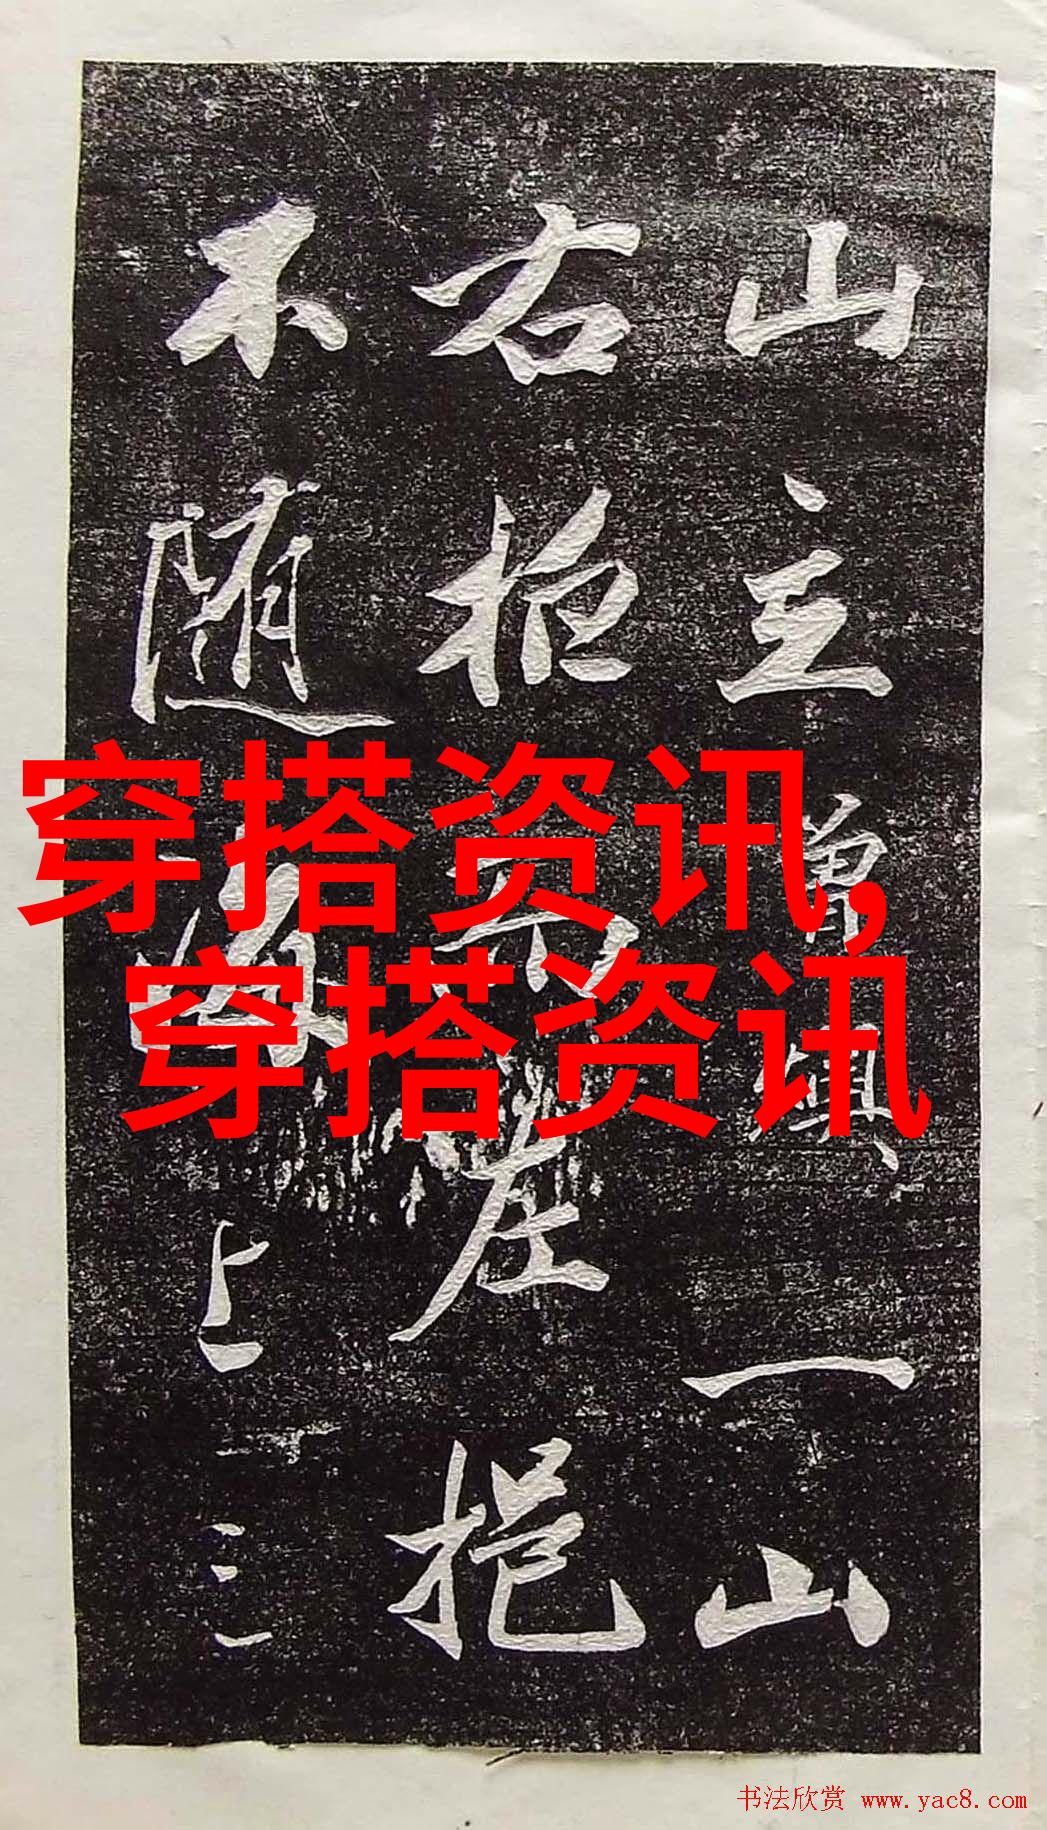 山主曾一山
右左挹
不随海上三
穿搭资讯,
穿搭资讯
书法欣赏 www.yac8.com